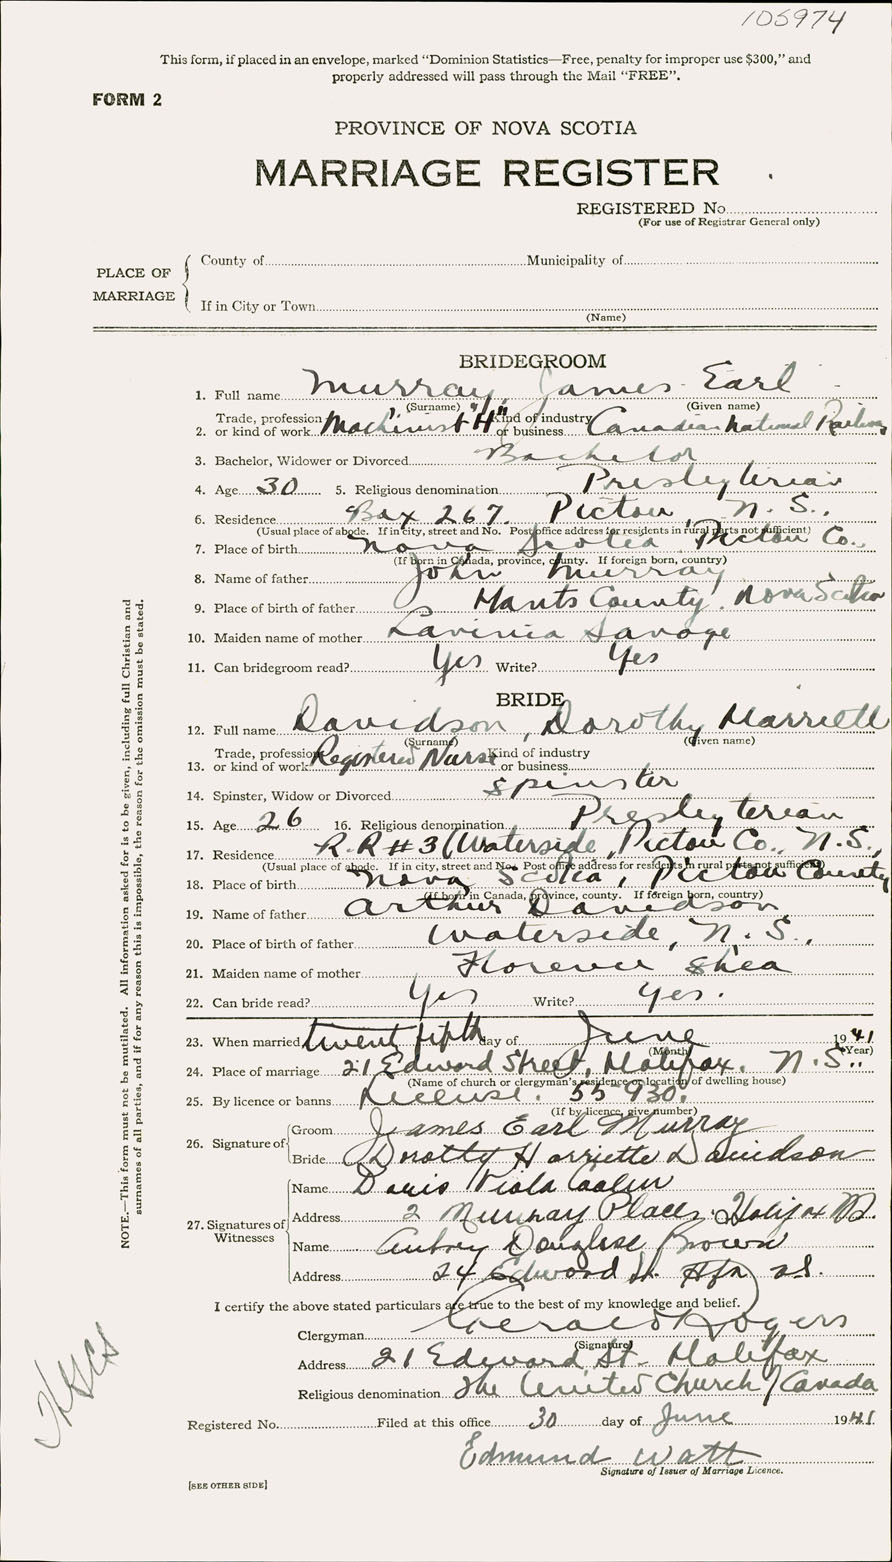 105974
This form, if placed in an envelope, marked “Dominion Statistics—Free, penalty for improper use $300,” and
properly addressed will pass through the Mail “FREE”.
FORM 2
PROVINCE OF NOVA SCOTIA
MARRIAGE REGISTER
REGISTERED No.
(For use of Registrar General only)
PLACE OF MARRIAGE
County of Municipality of
If in City or Town
(Name)
BRIDEGROOM
1. Full name Murray, James Earl
(Surname) (Given name)
2. Trade, profession or kind of work Machinist "H" Kind of industry or business Canadian National Railway
3. Bachelor, Widower or Divorced Bachelor
4. Age 30 5. Religious denomination Presbyterian
6. Residence Box 267. Pictou N.S.,
(Usual place of abode. If in city, street and No. Post office address for residents in rural parts not sufficient)
7. Place of birth Nova Scotia, Pictou Co.,
(If born in Canada, province, county. If foreign born, country)
8. Name of father John Murray
9. Place of birth of father Hants County, Nova Scotia
10. Maiden name of mother Lavinia Savage
11. Can bridegroom read? Yes Write? Yes
BRIDE
12. Full name Davidson, Dorothy Harriett
(Surname) (Given name)
13. Trade, profession or kind of work Registered Nurse Kind of industry or business
14. Spinster, Widow or Divorced Spinster
15. Age 26 16. Religious denomination Presbyterian
17. Residence R.R #3 (Waterside, Pictou Co., N.S.,
(Usual place of abode. If in city, street and No. Post office address for residents in rural parts not sufficient)
18. Place of birth Nova Scotia, Pictou County
(If born in Canada, province, county. If foreign born, country)
19. Name of father Arthur Davidson
20. Place of birth of father Waterside, N.S.,
21. Maiden name of mother Florence Shea
22. Can bride read? Yes Write? Yes.
23. When married twenty fifth day of June 1941
(Month) (Year)
24. Place of marriage 21 Edward Street, Halifax. N.S..
(Name of church or clergyman's residence or location of dwelling house)
25. By licence or banns License. 55930.
(If by licence, give number)
26. Signature of Groom James Earl Murray
Bride Dorothy Harriette Davidson
27. Signatures of Witnesses
Name Doris Viola
Address 2 Murray Place, Halifax
Name Aubrey Douglase Brown
Address 24 Edward St. Hfx N.S.
I certify the above stated particulars are true to the best of my knowledge and belief.
Clergyman Gerald Rogers
(Signature)
Address 21 Edward St. Halifax
Religious denomination The United Church of Canada
Registered No. Filed at this office 30 day of June 1941
Edmund Watt
Signature of Issuer of Marriage Licence.
[SEE OTHER SIDE]
NOTE.—This form must not be mutilated. All information asked for is to be given, including full Christian and
surnames of all parties, and if for any reason this is impossible, the reason for the omission must be stated.